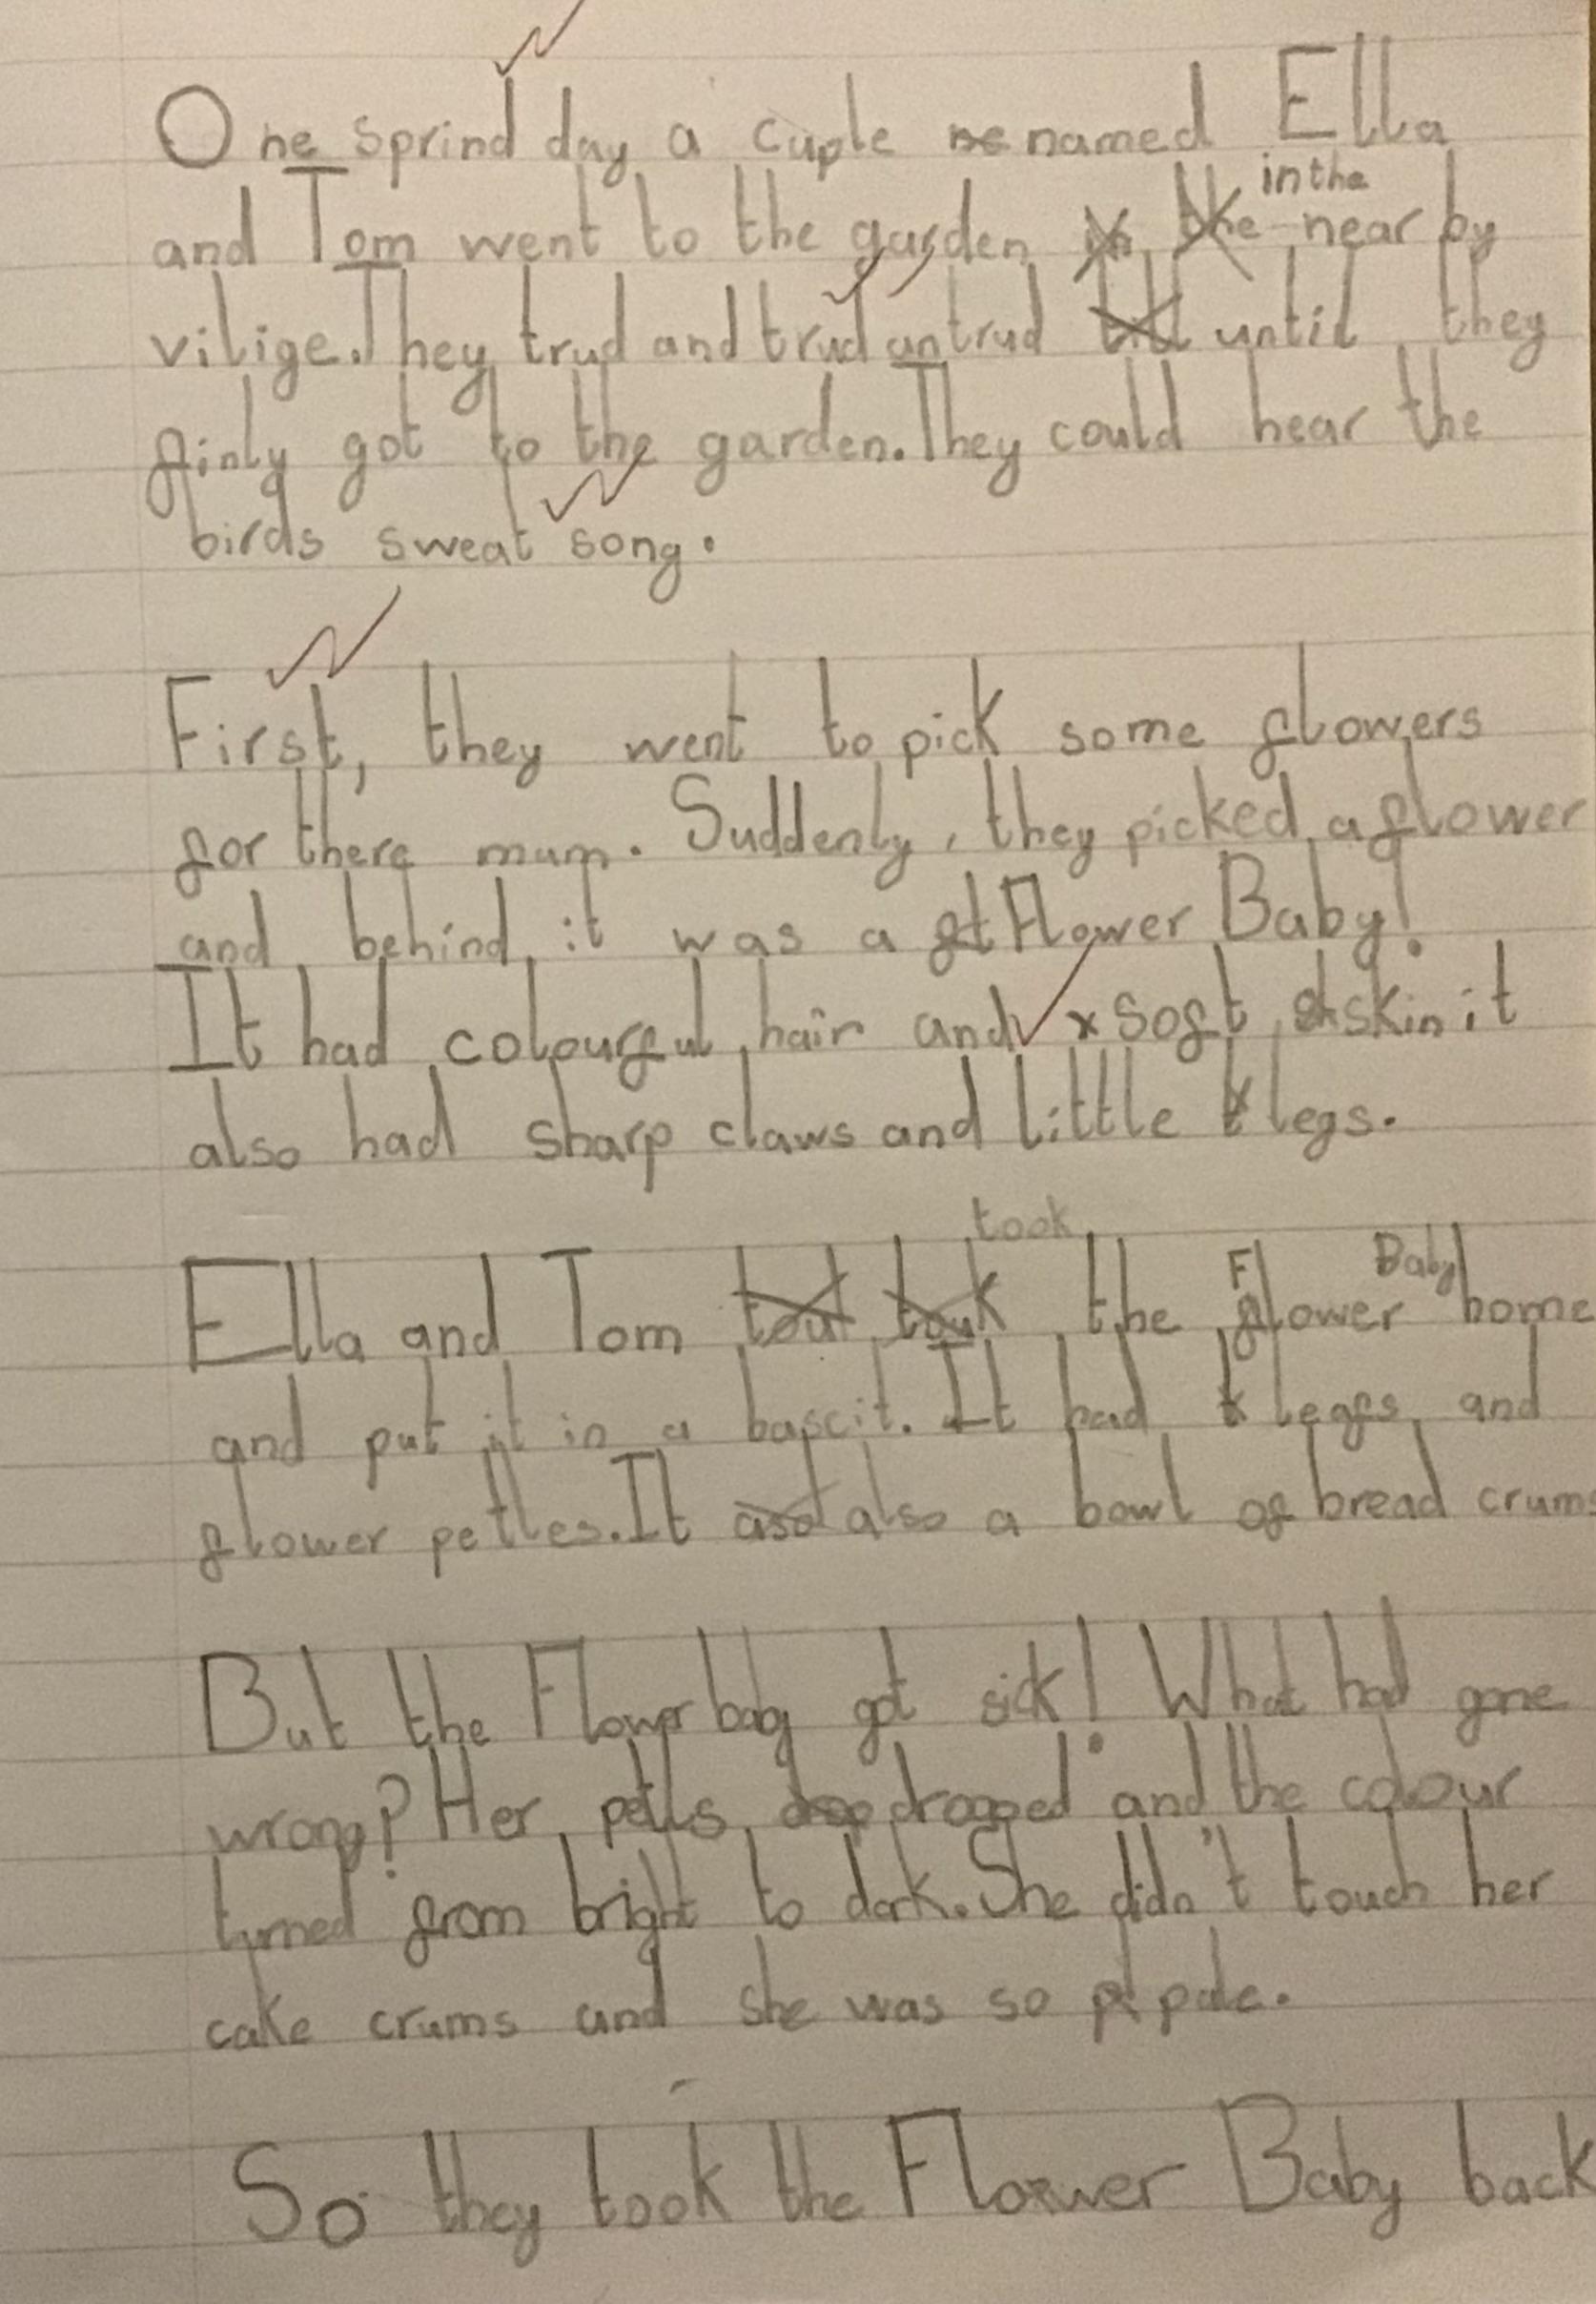 One sprind day a cuple named Ella
and Tom went to the garden in the near by
vilige. They trud and trud an trud until they
finly got to the garden. They could hear the
birds sweat song.
First, they went to pick some flowers
for there mum. Suddenly, they picked a flower
and behind it was a Flower Baby!
It had colourful hair and soft skin it
also had sharp claws and little legs.
Ella and Tom took the Flower Baby home
and put it in a bascit. It had leafs and
flower petles. It also a bowl of bread crums
But the Flower baby got sick! What had gone
wrong? Her petls drooped and the colour
turned from bright to dark. She didn't touch her
cake crums and she was so pale.
So they took the Flower Baby back